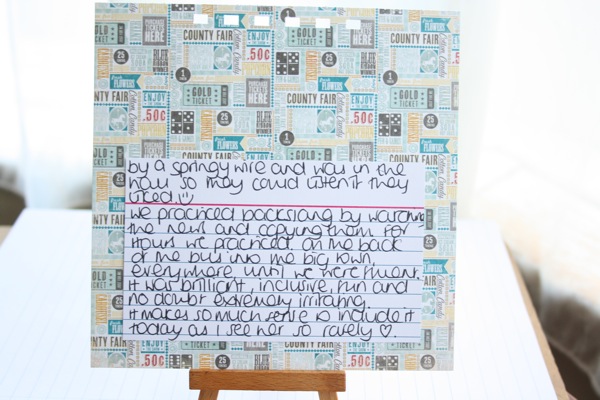 by a springy wire and was in the
hall so they could listen if they
liked.
We practiced backslang by watching
the news and copying them. For
Hours we practiced. On the back
of the bus into the big town,
everywhere until we were fluent.
It was brilliant, inclusive, fun and
no doubt extremely irritating.
It makes so much sense to include it
today as I see her so rarely ♡.
COUNTY FAIR
GOLD TICKET
ENJOY
.50¢
Fresh FLOWERS
Cotton Candy
CAROUSEL
BLUE RIBBON WINNER
PURCHASE HERE
25
1